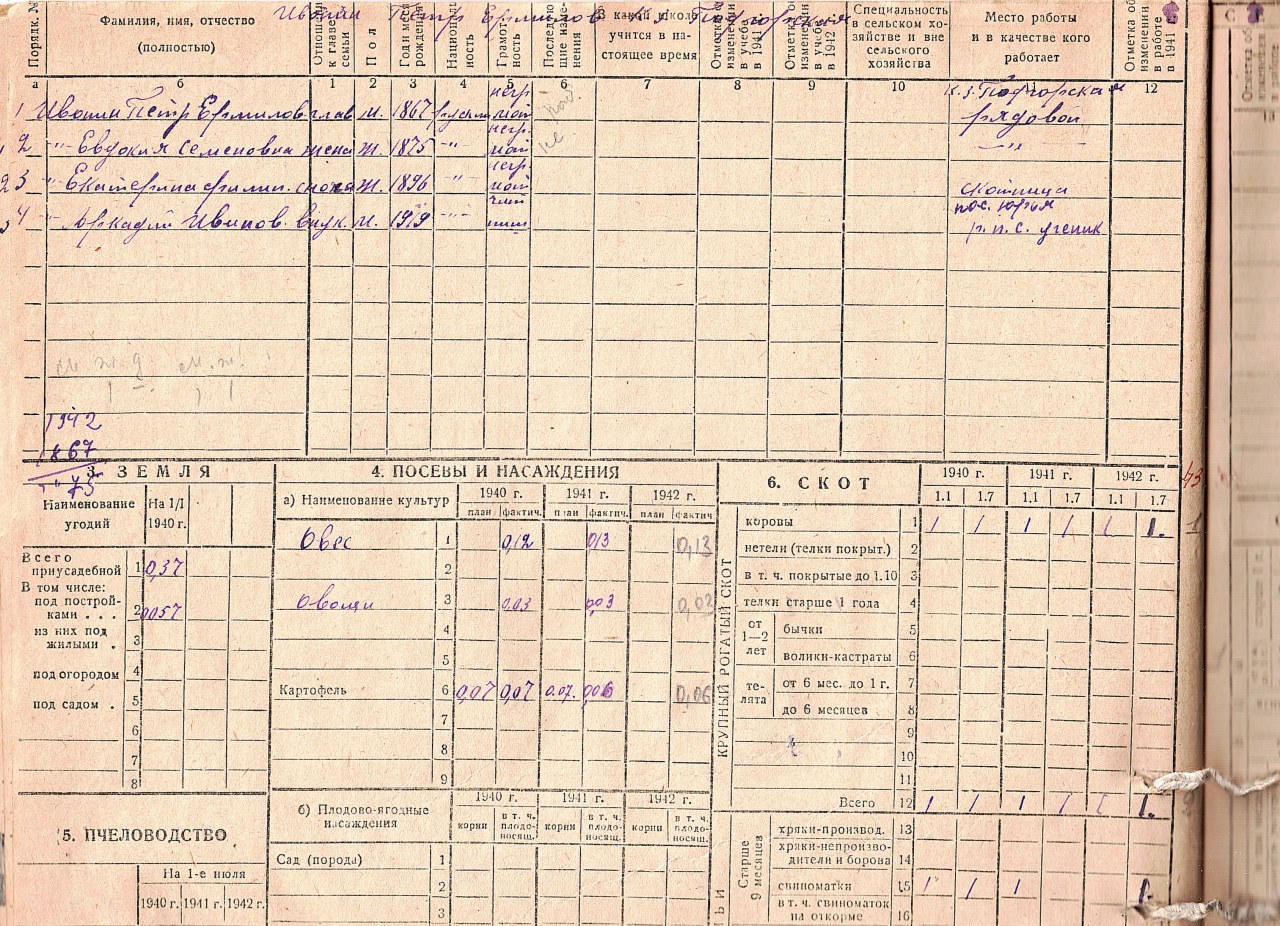 Ившин Петр Ермилов. Подгорская
Порядк. №
Фамилия, имя, отчество (полностью)
Отношение к главе семьи
Пол
Национальность
Грамотность
В какой школе учится в настоящее время
Отметка об изменении в учебе в 1941
Отметка об изменении в учебе в 1942 г.
Специальность в сельском хозяйстве и вне сельского хозяйства
Место работы и в качестве кого работает
Отметка об изменении в работе в 1941 г.
а б 1 2 3 4 5 6 7 8 9 10 11 12
1 Ившин Петр Ермилов глав м. 1867 русский негр. Подгорская рядовой
2 -"- Евдокия Семеновна жена ж. 1875 -"- негр. -"-
3 -"- Екатерина сноха ж. 1896 -"- негр. скотница
4 -"- Аркадий Иванов. внук. м. 1919 -"- пос. Юрья
ученик
1942
1867
75
3. ЗЕМЛЯ
Наименование угодий На 1/I 1940 г.
Всего приусадебной 1 0,37
В том числе:
под постройками . . . 2 0057
из них под жилыми . 3
под огородом 4
под садом . 5
6
7
8
5. ПЧЕЛОВОДСТВО
На 1-е июля
1940 г. 1941 г. 1942 г.
4. ПОСЕВЫ И НАСАЖДЕНИЯ
а) Наименование культур 1940 г. 1941 г. 1942 г.
план фактич. план фактич. план фактич
Овес 1 0,12 0,13 0,13
2
Овощи 3 0,03 0,03 0,03
4
5
Картофель 6 0,07 0,07 0.07. 0,06 0,06
7
8
9
б) Плодово-ягодные насаждения 1940 г. 1941 г. 1942 г.
корни в т. ч. плодоносящ. корни в т. ч. плодоносящ. корни в т. ч. плодоносящ.
Сад (порода) 1
2
3
6. СКОТ 1940 г. 1941 г. 1942 г.
1.1 1.7 1.1 1.7 1.1 1.7
КРУПНЫЙ РОГАТЫЙ СКОТ
коровы 1 1 1 1 1 1 1.
нетели (телки покрыт.) 2
в т. ч. покрытые до 1.10 3
телки старше 1 года 4
от 1—2 лет
бычки 5
волики-кастраты 6
телята
от 6 мес. до 1 г. 7
до 6 месяцев 8
9
10
11
Всего 12 1 1 1 1 1 1.
Старше 9 месяцев
хряки-производ. 13
хряки-непроизводители и борова 14
свиноматки 15 1 1 1 1.
в т. ч. свиноматок на откорме 16